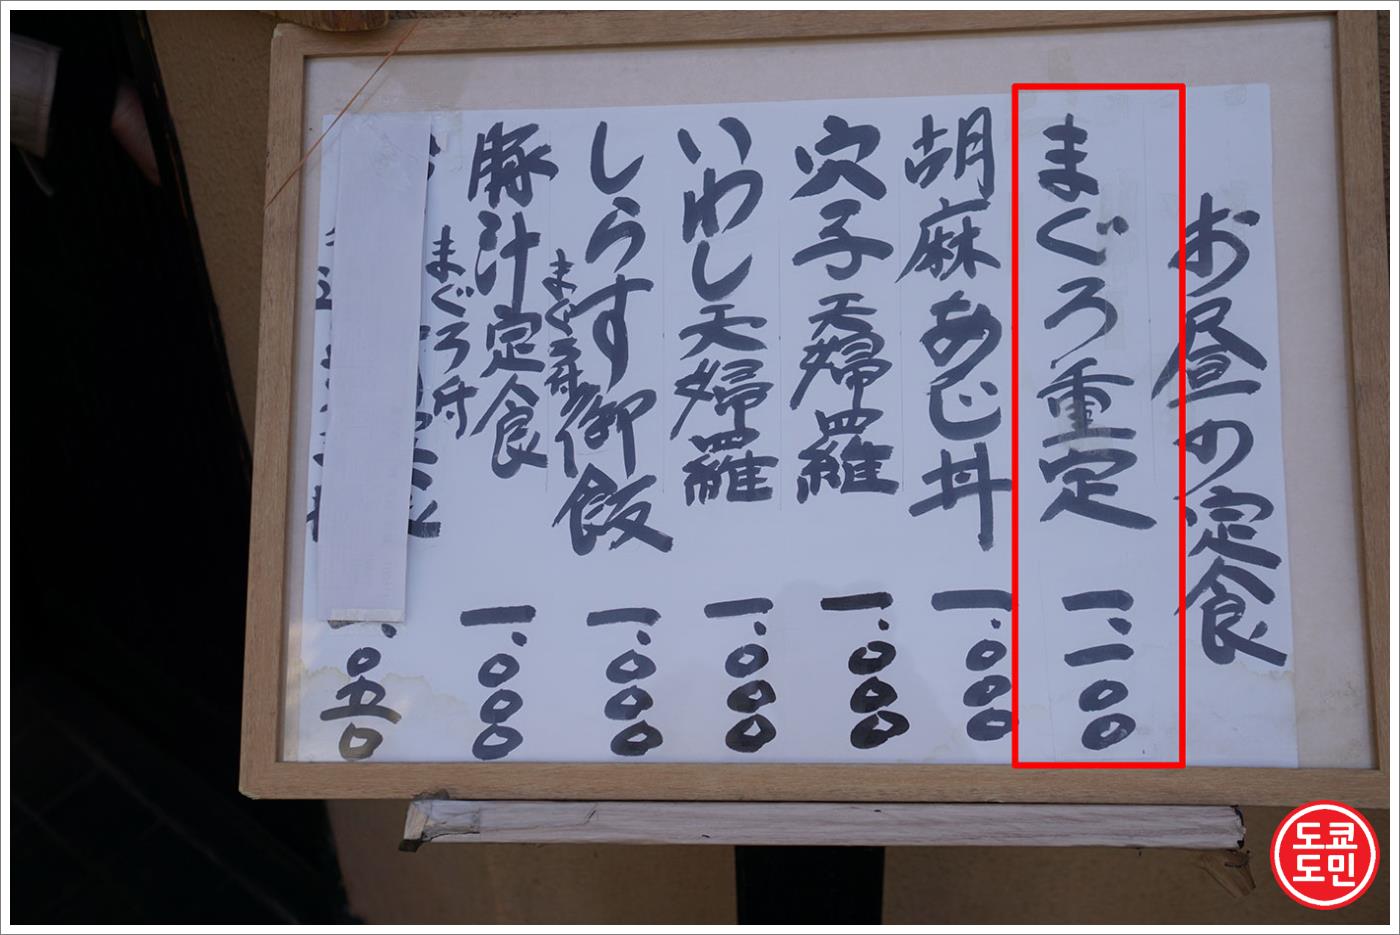 お昼の定食
まぐろ重定 一、一〇〇
胡麻あじ丼 一、〇〇〇
穴子天婦羅 一、〇〇〇
いわし天婦羅 一、〇〇〇
しらす御飯 一、〇〇〇
まぐろ
豚汁定食 一、〇〇〇
まぐろ丼
一、〇五〇
도쿄
도민